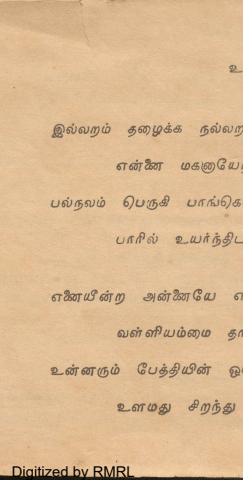 உ
இல்லறம் தழைக்க நல்லற
என்னை மகனாயே
பல்நலம் பெருகி பாங்கெ
பாரில் உயர்ந்திட
எனையீன்ற அன்னையே எ
வள்ளியம்மை தா
உன்னரும் பேத்தியின் ஒ
உளமது சிறந்து
Digitized by RMRL